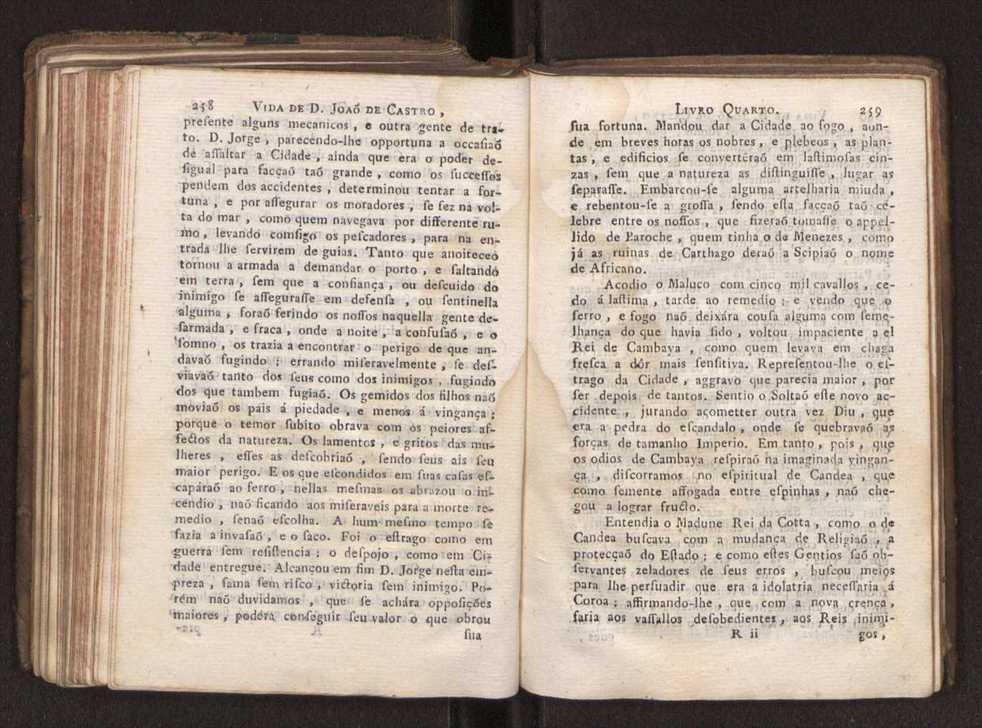 258 VIDA DE D. JOAÕ DE CASTRO ,
preſente alguns mecanicos , e outra gente de tra-
to. D. Jorge , parecendo-lhe opportuna a occaſiaõ
de aſſaltar a Cidade , ainda que era o poder de-
ſigual para facçaõ taõ grande , como os ſucceſſos
pendem dos accidentes , determinou tentar a for-
tuna , e por aſſegurar os moradores , ſe fez na vol-
ta do mar , como quem navegava por differente ru-
mo , levando comſigo os peſcadores , para na en-
trada lhe ſervirem de guias. Tanto que anoiteceo
tornou a armada a demandar o porto , e ſaltando
em terra , ſem que a confiança , ou deſcuido do
inimigo ſe aſſeguraſſe em defenſa , ou ſentinella
alguma , foraõ ferindo os noſſos naquella gente de-
ſarmada , e fraca , onde a noite , a confuſaõ , e o
ſomno , os trazia a encontrar o perigo de que an-
davaõ fugindo ; errando miſeravelmente , ſe deſ-
viavaõ tanto dos ſeus como dos inimigos , fugindo
dos que tambem fugiaõ. Os gemidos dos filhos naõ
moviaõ os pais á piedade , e menos á vingança ;
porque o temor ſubito obrava com os peiores af-
fectos da natureza. Os lamentos , e gritos das mu-
lheres , eſſes as deſcobriaõ , ſendo ſeus ais ſeu
maior perigo. E os que eſcondidos em ſuas caſas eſ-
capáraõ ao ferro , nellas meſmas os abrazou o in-
cendio , naõ ficando aos miſeraveis para a morte re-
medio , ſenaõ eſcolha. A hum meſmo tempo ſe
fazia a invaſaõ , e o ſaco. Foi o eſtrago como em
guerra ſem reſiſtencia ; o deſpojo , como em Ci-
dade entregue. Alcançou em fim D. Jorge neſta em-
preza , fama ſem riſco , victoria ſem inimigo. Po-
rém naõ duvidamos , que ſe achára oppoſições
maiores , podéra conſeguir ſeu valor o que obrou
ſua
LIVRO QUARTO. 259
ſua fortuna. Mandou dar a Cidade ao fogo , aon-
de em breves horas os nobres , e plebeos , as plan-
tas , e edificios ſe convertêraõ em laſtimoſas cin-
zas , ſem que a natureza as diſtinguiſſe , lugar as
ſeparaſſe. Embarcou-ſe alguma artelharia miuda ,
e rebentou-ſe a groſſa , ſendo eſta facçaõ taõ ce-
lebre entre os noſſos , que fizeraõ tomaſſe o appel-
lido de Baroche , quem tinha o de Menezes , como
já as ruinas de Carthago deraõ a Scipiaõ o nome
de Africano.
Acodio o Maluco com cinco mil cavallos , ce-
do á laſtima , tarde ao remedio ; e vendo que o
ferro , e fogo naõ deixára couſa alguma com ſeme-
lhança do que havia ſido , voltou impaciente a el
Rei de Cambaya , como quem levava em chaga
freſca a dôr mais ſenſitiva. Repreſentou-lhe o eſ-
trago da Cidade , aggravo que parecia maior , por
ſer depois de tantos. Sentio o Soltaõ eſte novo ac-
cidente , jurando acometter outra vez Diu , que
era a pedra do eſcandalo , onde ſe quebravaõ as
forças de tamanho Imperio. Em tanto , pois , que
os odios de Cambaya reſpiraõ na imaginada vingan-
ça , diſcorramos no eſpiritual de Candea , que
como ſemente affogada entre eſpinhas , naõ che-
gou a lograr fructo.
Entendia o Madune Rei da Cotta , como o de
Candea buſcava com a mudança de Religiaõ , a
protecçaõ do Eſtado ; e como eſtes Gentios ſaõ ob-
ſervantes zeladores de ſeus erros , buſcou meios
para lhe perſuadir que era a idolatria neceſſaria á
Coroa ; affirmando-lhe , que com a nova crença ,
faria aos vaſſallos deſobedientes , aos Reis inimi-
R ii gos ,